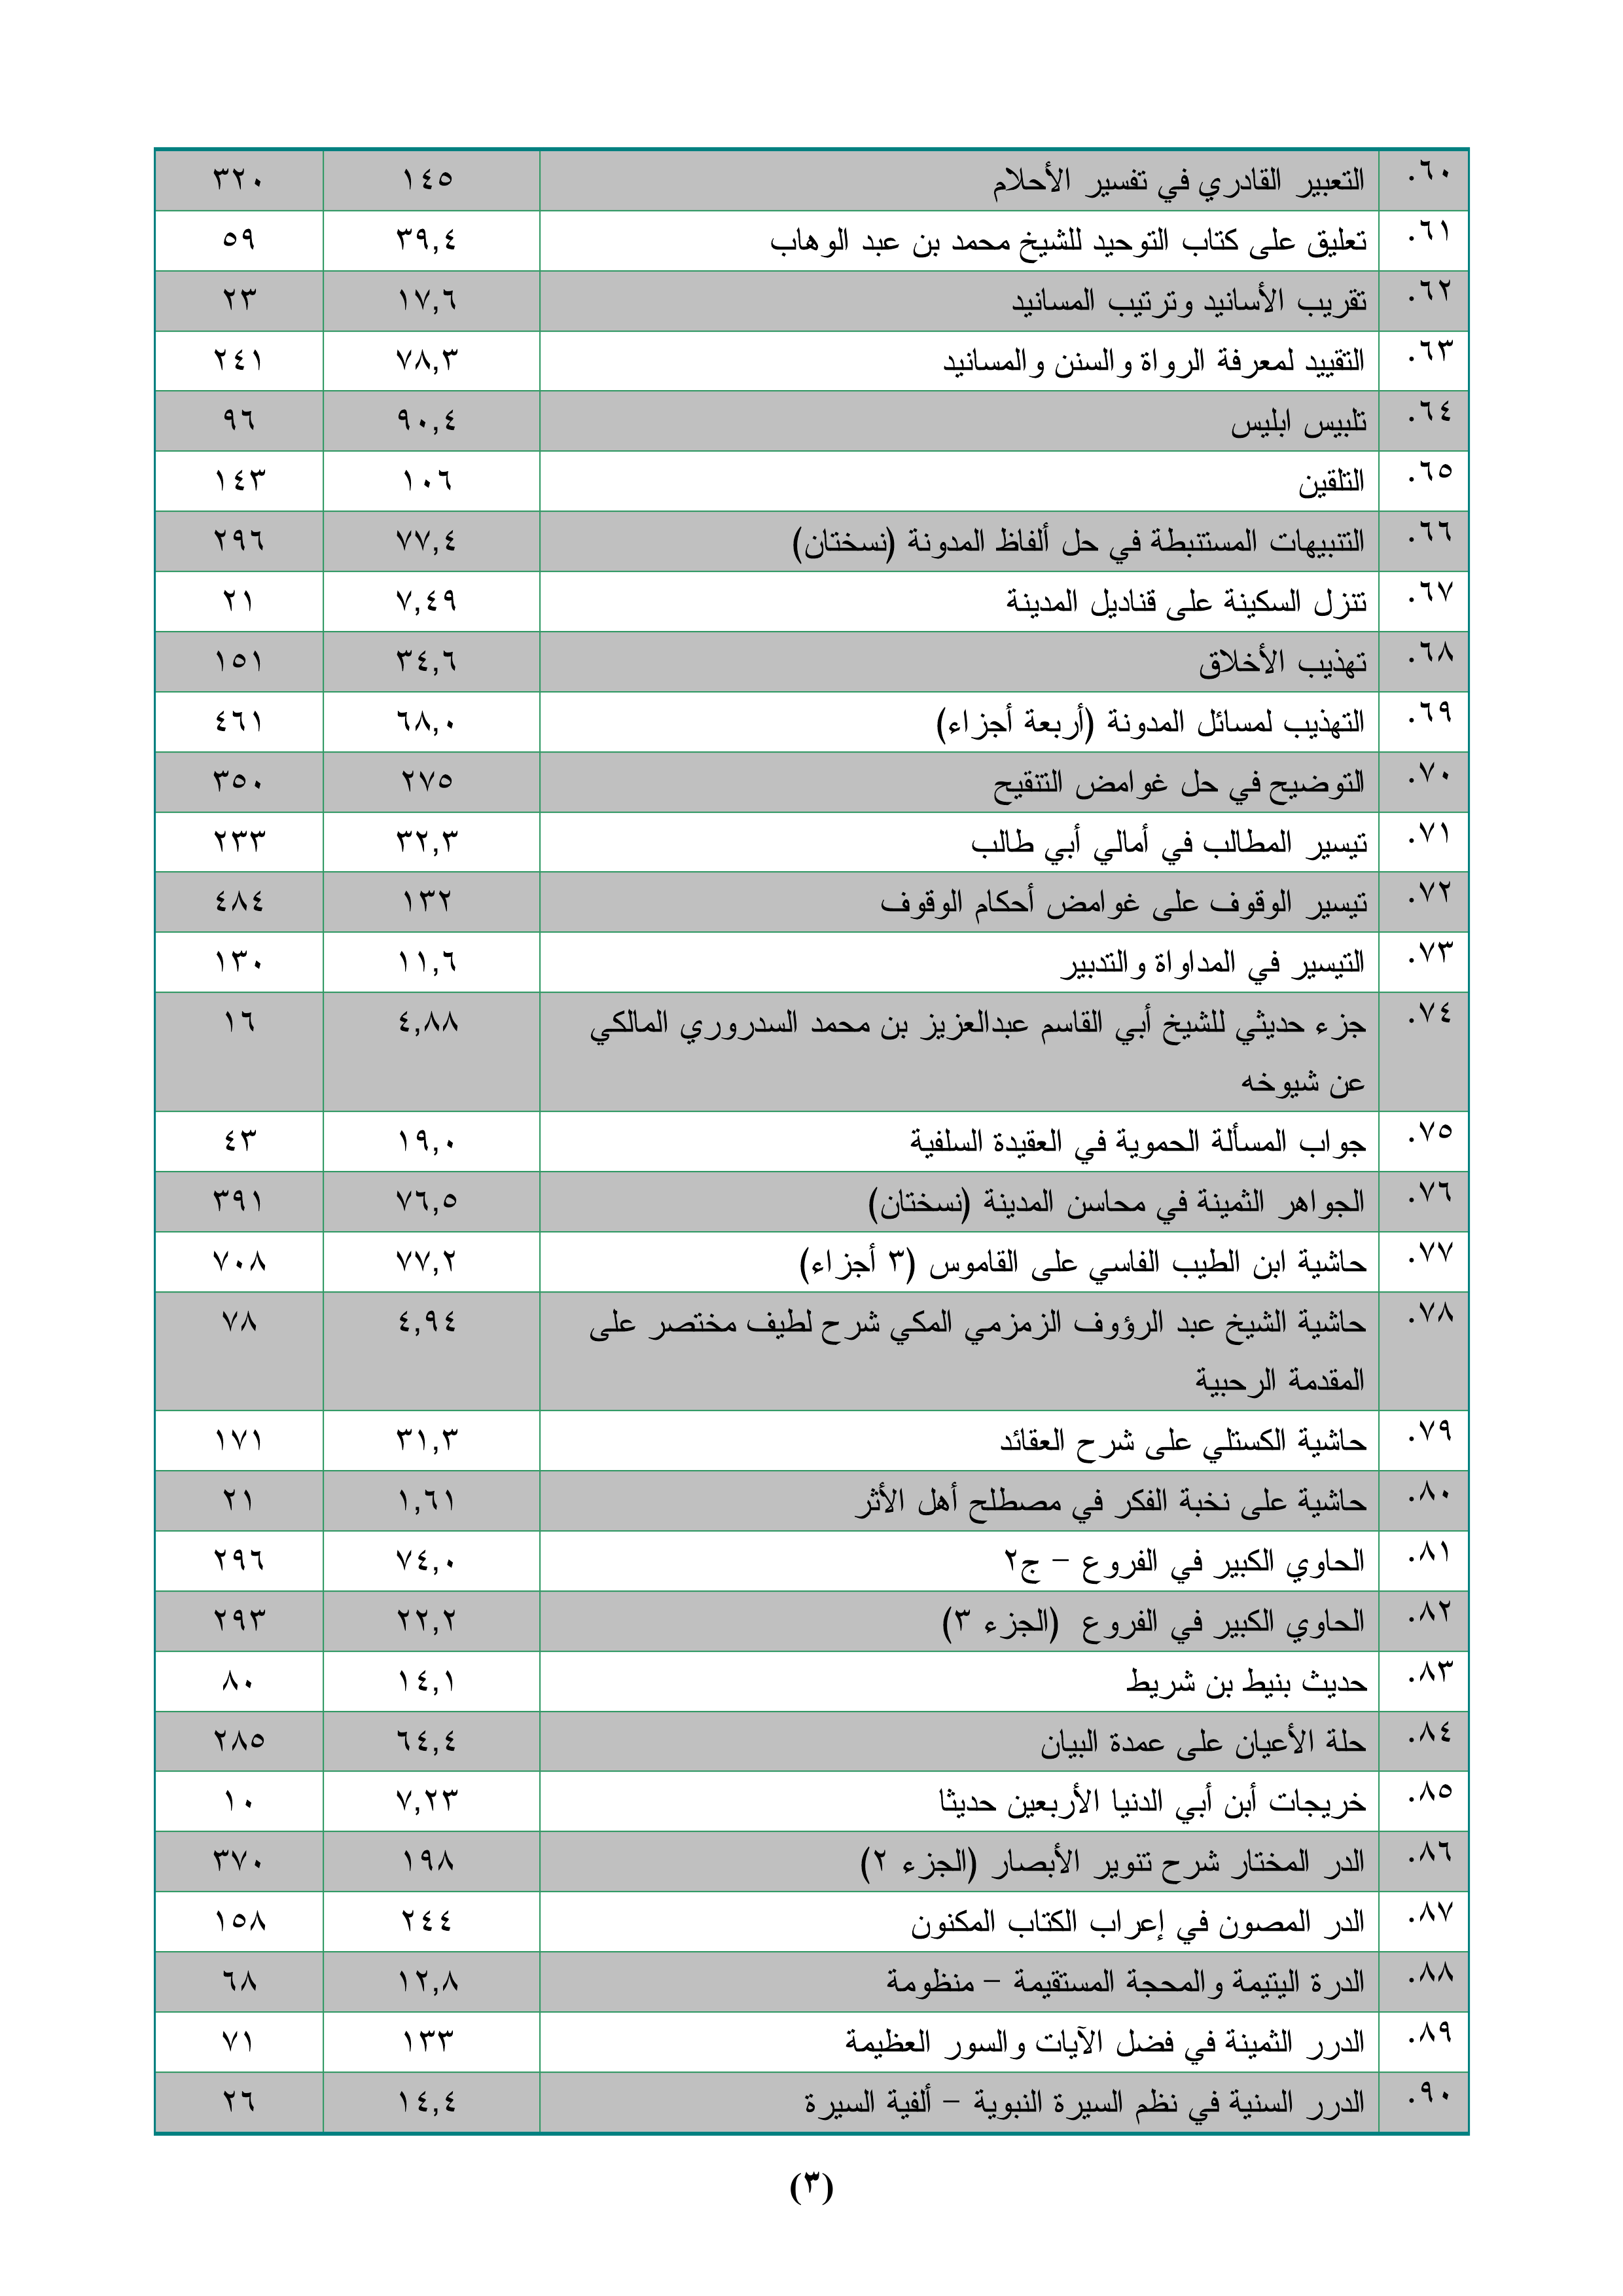 ٦٠. التعبير القادري في تفسير الأحلام ١٤٥ ٣٢٠
٦١. تعليق على كتاب التوحيد للشيخ محمد بن عبد الوهاب ٣٩,٤ ٥٩
٦٢. تقريب الأسانيد وترتيب المسانيد ١٧,٦ ٢٣
٦٣. التقييد لمعرفة الرواة والسنن والمسانيد ٧٨,٣ ٢٤١
٦٤. تلبيس ابليس ٩٠,٤ ٩٦
٦٥. التلقين ١٠٦ ١٤٣
٦٦. التنبيهات المستنبطة في حل ألفاظ المدونة (نسختان) ٧٧,٤ ٢٩٦
٦٧. تنزل السكينة على قناديل المدينة ٧,٤٩ ٢١
٦٨. تهذيب الأخلاق ٣٤,٦ ١٥١
٦٩. التهذيب لمسائل المدونة (أربعة أجزاء) ٦٨,٠ ٤٦١
٧٠. التوضيح في حل غوامض التنقيح ٢٧٥ ٣٥٠
٧١. تيسير المطالب في أمالي أبي طالب ٣٢,٣ ٢٣٣
٧٢. تيسير الوقوف على غوامض أحكام الوقوف ١٣٢ ٤٨٤
٧٣. التيسير في المداواة والتدبير ١١,٦ ١٣٠
٧٤. جزء حديثي للشيخ أبي القاسم عبدالعزيز بن محمد السدروري المالكي ٤,٨٨ ١٦
عن شيوخه
٧٥. جواب المسألة الحموية في العقيدة السلفية ١٩,٠ ٤٣
٧٦. الجواهر الثمينة في محاسن المدينة (نسختان) ٧٦,٥ ٣٩١
٧٧. حاشية ابن الطيب الفاسي على القاموس (٣ أجزاء) ٧٧,٢ ٧٠٨
٧٨. حاشية الشيخ عبد الرؤوف الزمزمي المكي شرح لطيف مختصر على ٤,٩٤ ٧٨
المقدمة الرحبية
٧٩. حاشية الكستلي على شرح العقائد ٣١,٣ ١٧١
٨٠. حاشية على نخبة الفكر في مصطلح أهل الأثر ١,٦١ ٢١
٨١. الحاوي الكبير في الفروع – ج٢ ٧٤,٠ ٢٩٦
٨٢. الحاوي الكبير في الفروع (الجزء ٣) ٢٢,٢ ٢٩٣
٨٣. حديث بنيط بن شريط ١٤,١ ٨٠
٨٤. حلة الأعيان على عمدة البيان ٦٤,٤ ٢٨٥
٨٥. خريجات أبن أبي الدنيا الأربعين حديثا ٧,٢٣ ١٠
٨٦. الدر المختار شرح تنوير الأبصار (الجزء ٢) ١٩٨ ٣٧٠
٨٧. الدر المصون في إعراب الكتاب المكنون ٢٤٤ ١٥٨
٨٨. الدرة اليتيمة والمحجة المستقيمة – منظومة ١٢,٨ ٦٨
٨٩. الدرر الثمينة في فضل الآيات والسور العظيمة ١٣٣ ٧١
٩٠. الدرر السنية في نظم السيرة النبوية – ألفية السيرة ١٤,٤ ٢٦
(٣)